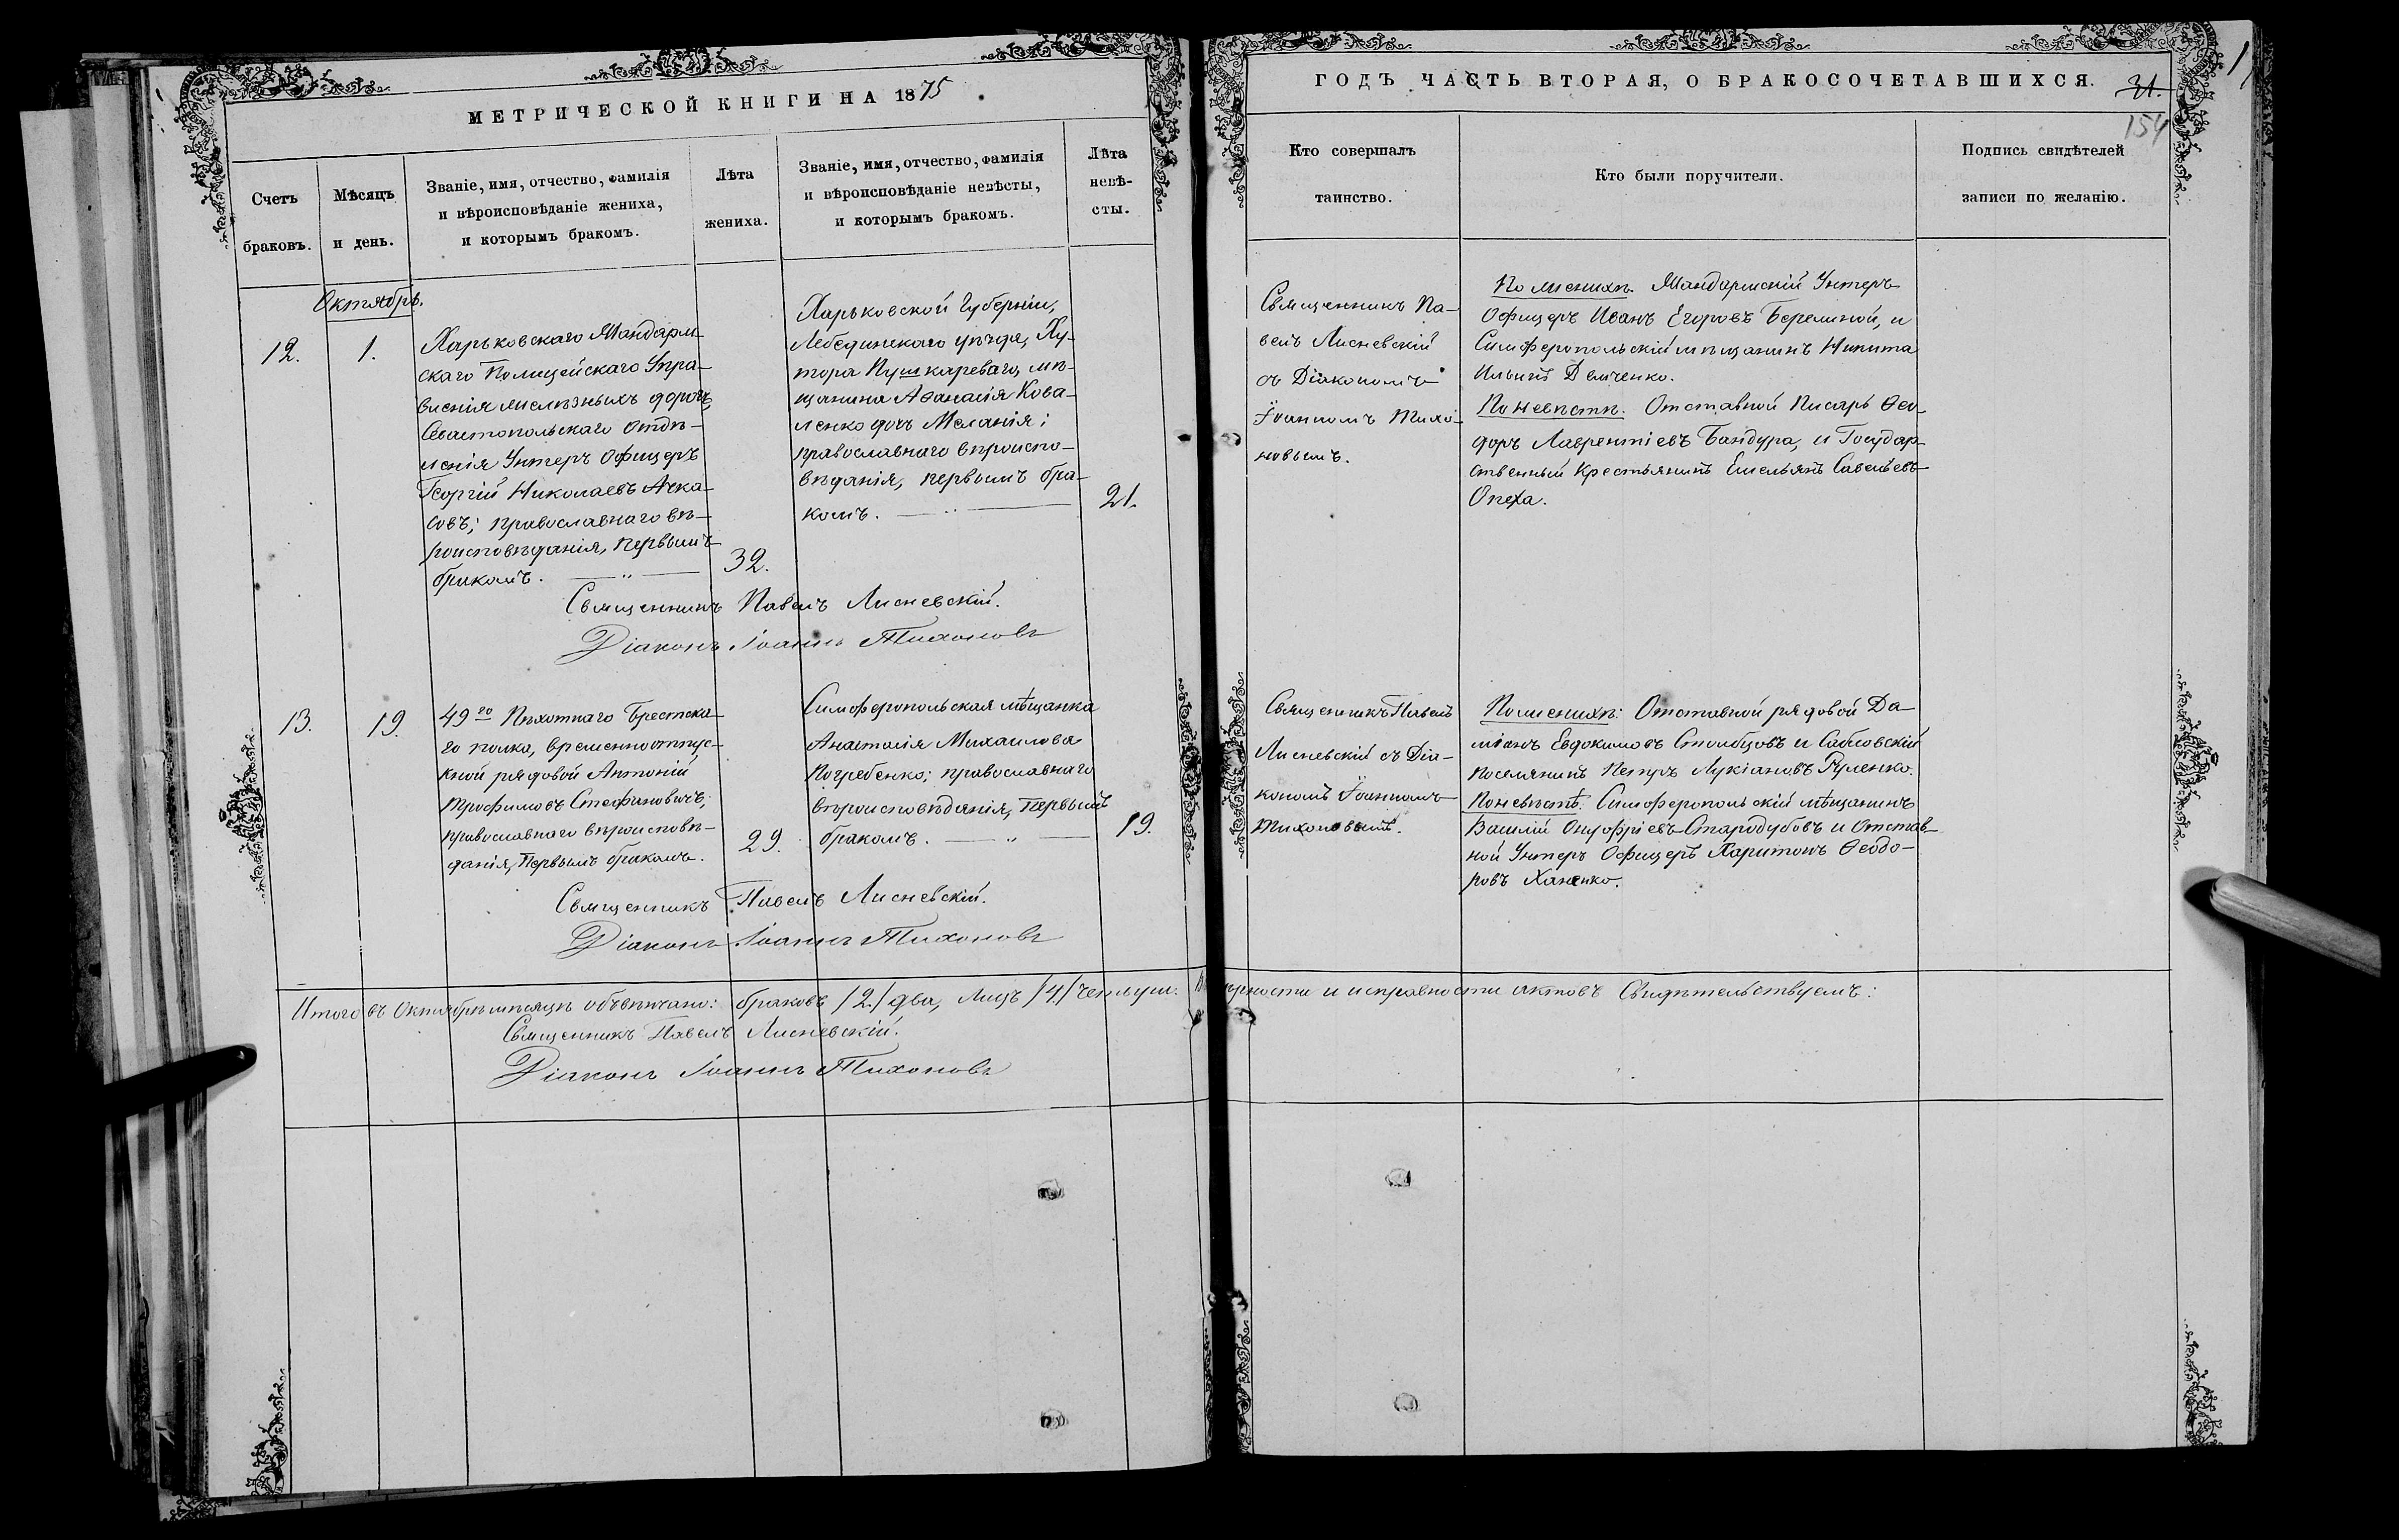 МЕТРИЧЕСКОЙ КНИГИ НА 1875
Счетъ
браковъ.
Мѣсяцъ
и день.
Званіе, имя, отчество, фамилія
и вѣроисповѣданіе жениха,
и которымъ бракомъ.
Лѣта
жениха.
Званіе, имя, отчество, фамилія
и вѣроисповѣданіе невѣсты,
и которымъ бракомъ.
Лѣта
невѣ-
сты.
Октябрь.
12.
1.
Харьковскаго Жандарм-
скаго Полицейскаго Упра-
вленія желѣзныхъ дорогъ,
Севастопольскаго Отдѣ-
ленія Унтеръ Офицеръ
Георгій Николаевъ Ачка-
совъ; православнаго вѣ-
роисповѣданія, первымъ
бракомъ.
32.
Харьковской Губерніи,
Лебединскаго уѣзда, Ху-
тора Пушкареваго, мѣ-
щанина Аѳанасія Кова-
ленко дочь Меланія;
православнаго вѣроиспо-
вѣданія, первымъ бра-
комъ.
21.
Священникъ Павелъ Лисневскій.
Діаконъ Іоаннъ Тихоновъ
13.
19.
49го Пѣхотнаго Брестска-
го полка, временноотпус-
кной рядовой Антоній
Трофимовъ Стефановичъ,
православнаго вѣроисповѣ-
данія, Первымъ бракомъ.
29.
Симферопольская мѣщанка
Анастасія Михаилова
Погребенко; православнаго
вѣроисповѣданія, первымъ
бракомъ.
19.
Священникъ Павелъ Лисневскій.
Діаконъ Іоаннъ Тихоновъ
Итого въ Октябрѣ мѣсяцѣ обвѣнчано: браковъ /2/ два, Лицъ /4/ четыре.
Священникъ Павелъ Лисневскій.
Діаконъ Іоаннъ Тихоновъ
ГОДЪ ЧАСТЬ ВТОРАЯ, О БРАКОСОЧЕТАВШИХСЯ.
21.
154
Кто совершалъ
таинство.
Кто были поручители.
Подпись свидѣтелей
записи по желанію.
Священникъ Па-
велъ Лисневскій
съ Діакономъ
Іоанномъ Тихо-
новымъ.
По женихѣ. Жандармскій Унтеръ
Офицеръ Иванъ Егоровъ Бережной, и
Симферопольскій мѣщанинъ Никита
Ильинъ Демченко.
По невѣстѣ. Отставной Писарь Ѳео-
доръ Лаврентіевъ Бандура, и Государ-
ственный Крестьянинъ Емельянъ Савельевъ
Опеха.
Священникъ Павелъ
Лисневскій съ Діа-
кономъ Іоанномъ
Тихоновымъ.
По женихѣ: Отставной рядовой Да-
міанъ Евдокимовъ Столбцовъ и Сабловскій
поселянинъ Петръ Лукіановъ Руленко.
По невѣстѣ. Симферопольскій мѣщанинъ
Василій Онуфріевъ Стародубовъ и Отстав-
ной Унтеръ Офицеръ Харитонъ Ѳеодо-
ровъ Ханенко.
вѣрности и исправности актовъ Свидѣтельствуемъ: